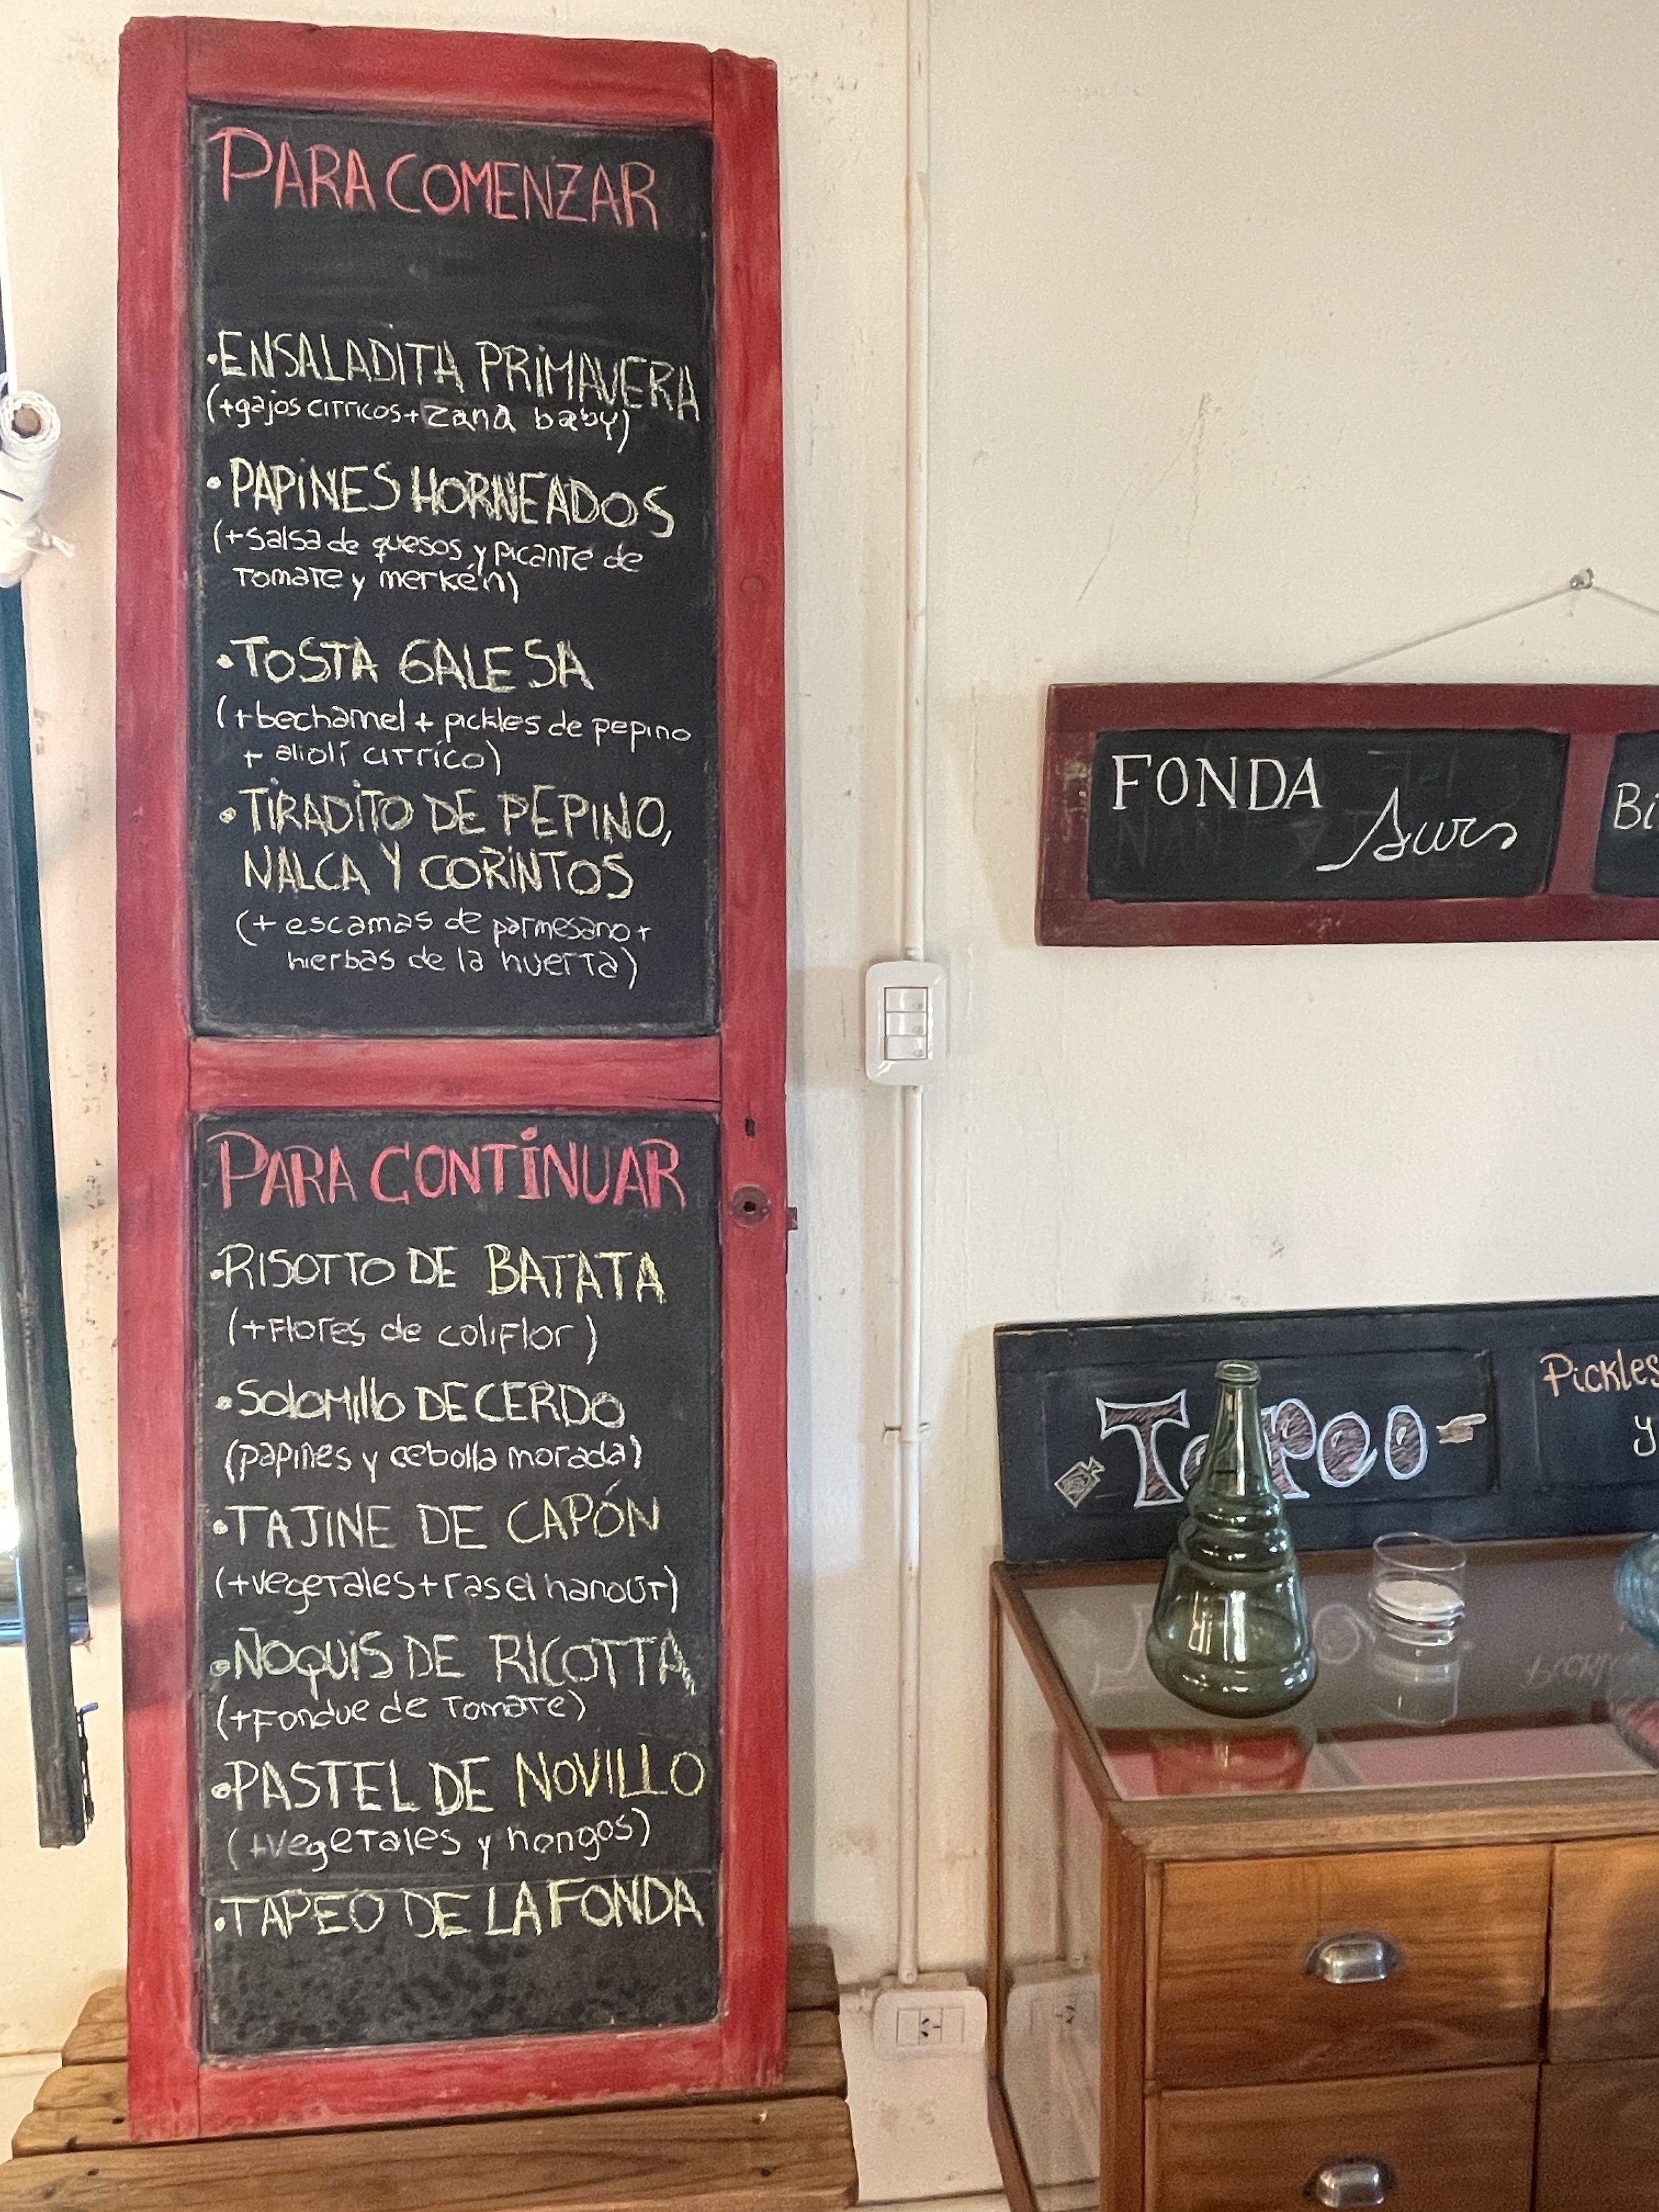 PARA COMENZAR
•ENSALADITA PRIMAVERA
(+gajos citricos+zana baby)
•PAPINES HORNEADOS
(+salsa de quesos y picante de
tomate y merkén)
•TOSTA GALESA
(+bechamel + pickles de pepino
+ aliolí cítríco)
•TIRADITO DE PEPINO,
NALCA Y CORINTOS
(+ escamas de parmesano+
hierbas de la huerta)
PARA CONTINUAR
•RISOTTO DE BATATA
(+Flores de coliFlor)
•Solomillo DE CERDO
(papines y cebolla morada)
•TAJINE DE CAPÓN
(+vegetales+ras el hanout)
•ÑOQUIS DE RICOTTA
(+Fondue de Tomate)
•PASTEL DE NOVILLO
(+vegetales y hongos)
•TAPEO DE LA FONDA
FONDA
Surs
Bi
Tapeo
Pickles
y